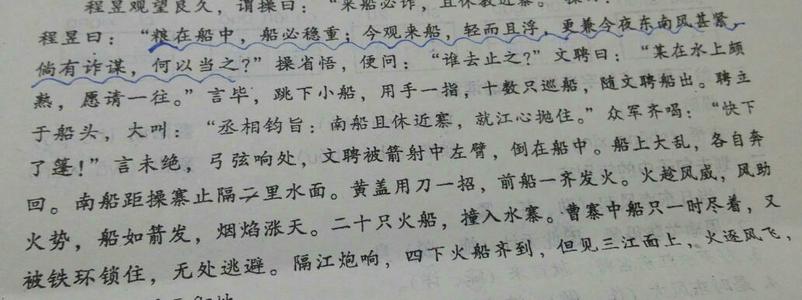 程昱观望良久，谓操曰：“来船必诈，且休教近寨。”
程昱曰：“粮在船中，船必稳重；今观来船，轻而且浮，更兼今夜东南风甚紧，
倘有诈谋，何以当之？”操省悟，便问：“谁去止之？”文聘曰：“某在水上颇
熟，愿请一往。”言毕，跳下小船，用手一指，十数只巡船，随文聘船出。聘立
于船头，大叫：“丞相钧旨：南船且休近寨，就江心抛住。”众军齐喝：“快下
了篷！”言未绝，弓弦响处，文聘被箭射中左臂，倒在船中。船上大乱，各自奔
回。南船距操寨止隔二里水面。黄盖用刀一招，前船一齐发火。火趁风威，风助
火势，船如箭发，烟焰涨天。二十只火船，撞入水寨。曹寨中船只一时尽着，又
被铁环锁住，无处逃避。隔江炮响，四下火船齐到，但见三江面上，火逐风飞，